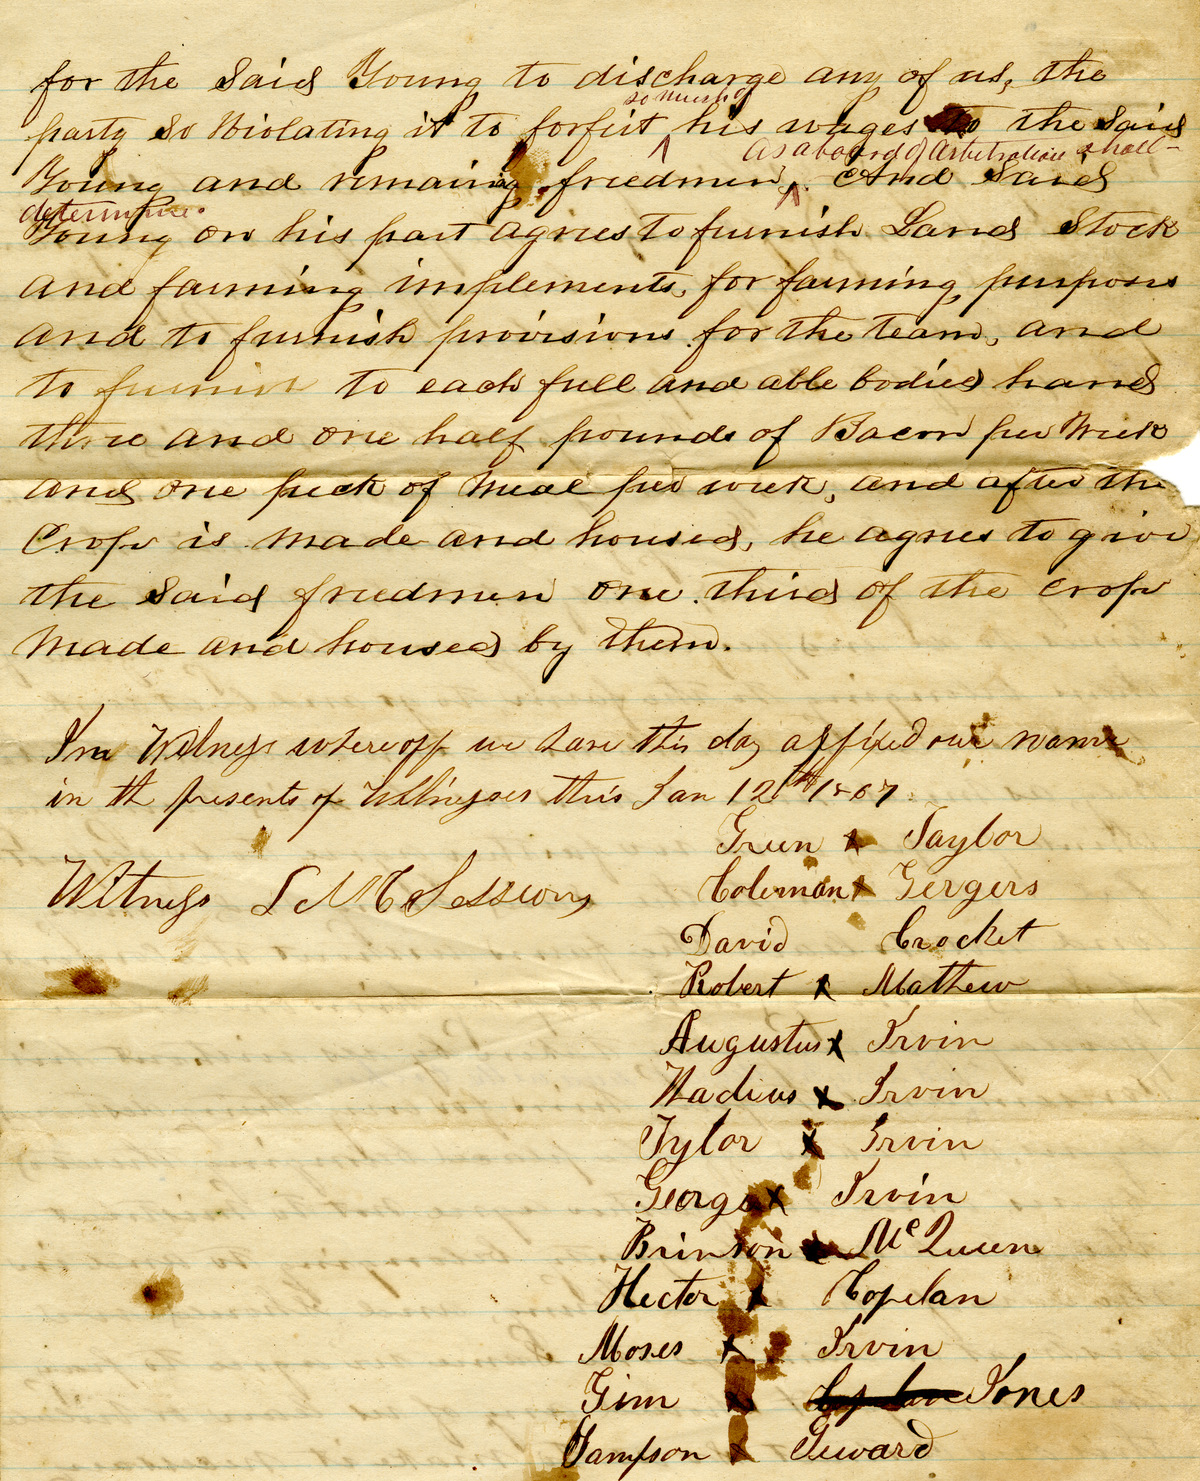 for the Said Young to discharge any of us, the
so much of
party so violating it to forfeit his wages to the Said
as a board of arbitration shall
Young and remaining freedmen, And Said
determine.
Young on his part agrees to furnish Land Stock
and farming implements, for farming purposes
and to furnish provisions for the team, and
to furnish to each full and able bodied hand
three and one half pounds of Bacon per Week
and one peck of Meal per week, and after the
Crop is made and housed, he agrees to give
the Said freedmen one third of the crop
made and housed by them.
Inn Witness whereoff we have this day affixed our name
in th presents of Witnesses this Jan 12th 1867.
Green x Taylor
Witness L M Sessions
Coleman x Gergers
David Crocket
Robert x Mathew
Augustus x Irvin
Wadius x Irvin
Tylor x Irvin
George x Irvin
Brinson x McQueen
Hector x Copelan
Moses x Irvin
Gim x Jones
Sampson x Seward